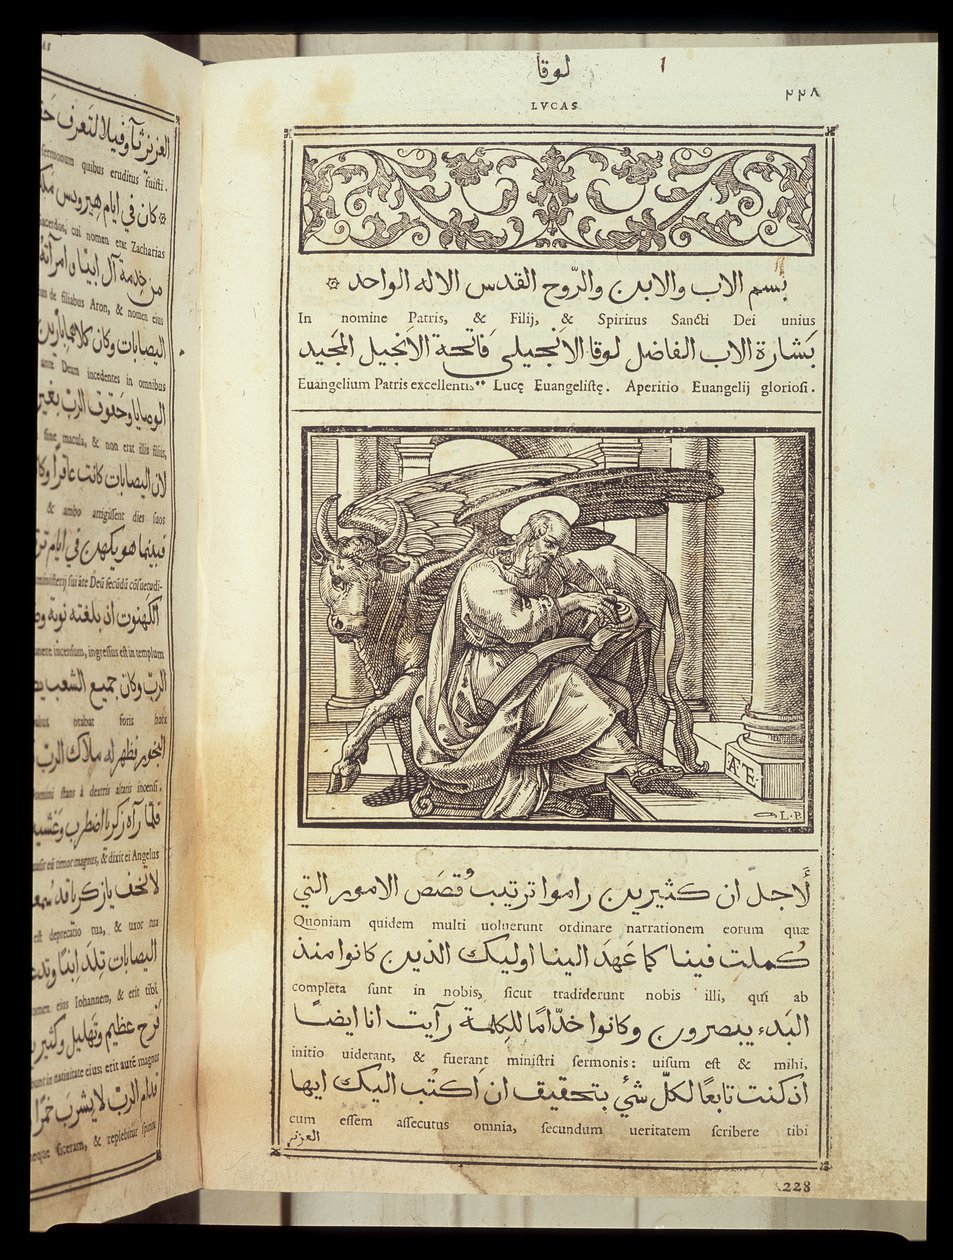 لوقا ١ ٢٢٨
LVCAS
بسم الاب والابن والرّوح القدس الاله الواحد
In nomine Patris, & Filij, & Spiritus Sancti Dei unius
بَشارة الاب الفاضل لوقا الانجيلي فَاتحة الانجيل المَجيد
Euangelium Patris excellentis Lucę Euangelistę. Aperitio Euangelij gloriosi.
Æ.
L.P.
لَاجل ان كثيرين راموا ترتيب قُصَص الامور التي
Quoniam quidem multi uoluerunt ordinare narrationem eorum quæ
كُملت فينا كما عَهَدَ الينا اوليك الذين كانوا منذ
completa sunt in nobis, sicut tradiderunt nobis illi, qui ab
البَدء يبصرون وكانوا خدّامًا للكِلمة رآيت انا ايضًا
initio uiderant, & fuerant ministri sermonis: uisum est & mihi,
اذكنت تابعًا لكلّ شيء بتحقيق ان اكتُب اليك ايها
cum essem assecutus omnia, secundum ueritatem scribere tibi
العزيز
228
العزيز ثاَوفيلا لتَعرف
sermonum quibus eruditus fuisti.
كان في ايام هيرودس
cui nomen erat Zacharias
من خِدمة آل ابيّا وامرآته
de filiabus Aron, & nomen eius
اليصابات وكان كلاهما بارّين
ante Deum incedentes in omnibus
الوصايا وحقوف الربّ بغير
sine macula, & non erat illis filius,
لان اليصابات كانت عاقرًا
& ambo attigissent dies suos
فبينما هو يكهن في ايام
ministerij sui
الكهنوت اذ بلغته نوبة
incensum, ingressus est in templum
الربّ وكان جميع الشعب
orabat foris hora
البخور فظهر له ملاك الربّ
stans à dextris altaris incensi.
فلمّا رآه زكريا اضطرب
eū timor magnus, & dixit ei Angelus
لا تَخف يازكريا قد
est deprecatio tua, & uxor tua
اليصابات تلد ابنًا
nomen eius Iohannem, & erit tibi
فرح عظيم وتهليل وكثير
in natiuitate eius erit autē magnus
قدام الربّ لا يشرب خمرًا
siceram, & replebitur spiritu